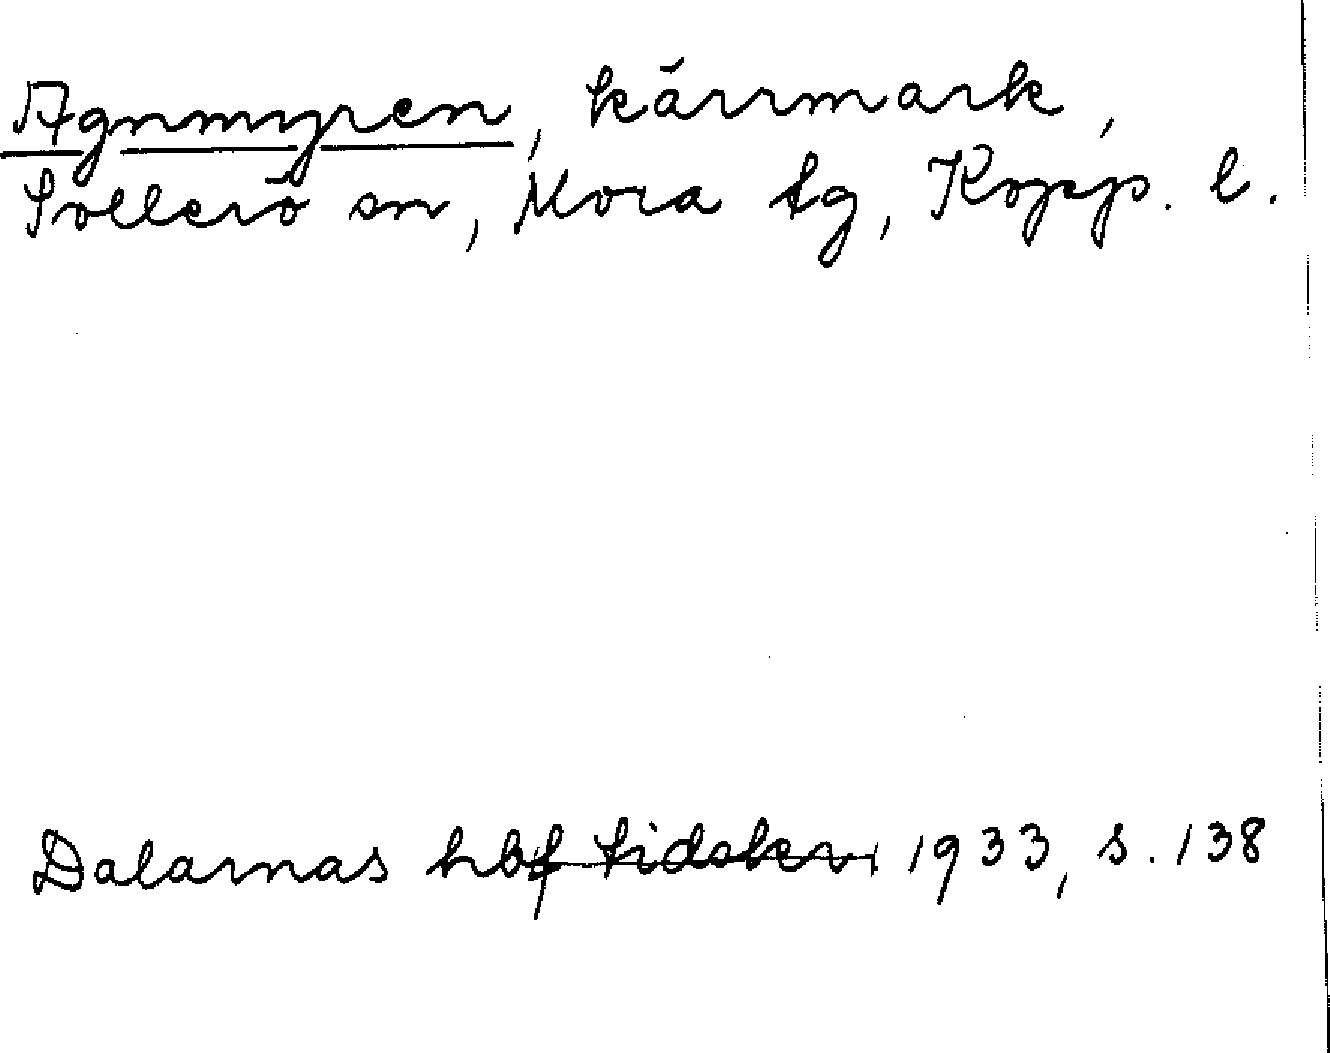 Agnmyren, kärrmark,
Sollerö sn, Mora tg, Kopp. l.
Dalarnas hbf tidskr. 1933, s. 138